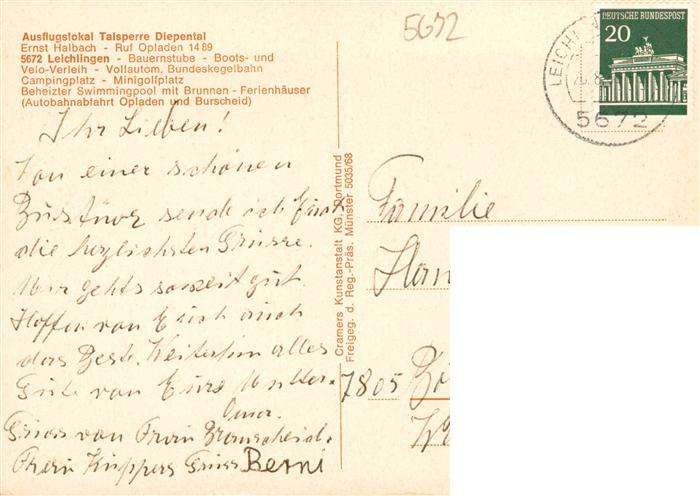 Ausflugslokal Talsperre Diepental
Ernst Halbach - Ruf Opladen 14 89
5672 Leichlingen - Bauernstube - Boots- und
Velo-Verleih - Vollautom. Bundeskegelbahn
Campingplatz - Minigolfplatz
Beheizter Swimmingpool mit Brunnen - Ferienhäuser
(Autobahnabfahrt Opladen und Burscheid)
5672
DEUTSCHE BUNDESPOST
20
LEICHL
5672
Ihr Lieben!
Von einer schönen
sende ich Euch
die herzlichsten Grüsse.
Mir gehts soweit gut.
Hoffen von Euch auch
das Beste. Weiterhin alles
Gute von Eure Mutter.
Oma.
Gruss von Frau
Frau Küppers Gruss Berni
Cramers Kunstanstalt KG, Dortmund
Freigeg. d. Reg.-Präs. Münster 5035/68
Familie
7805